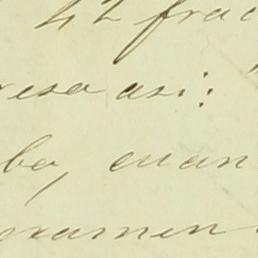 42 frac
resa asi: "
ba, cuan
examen